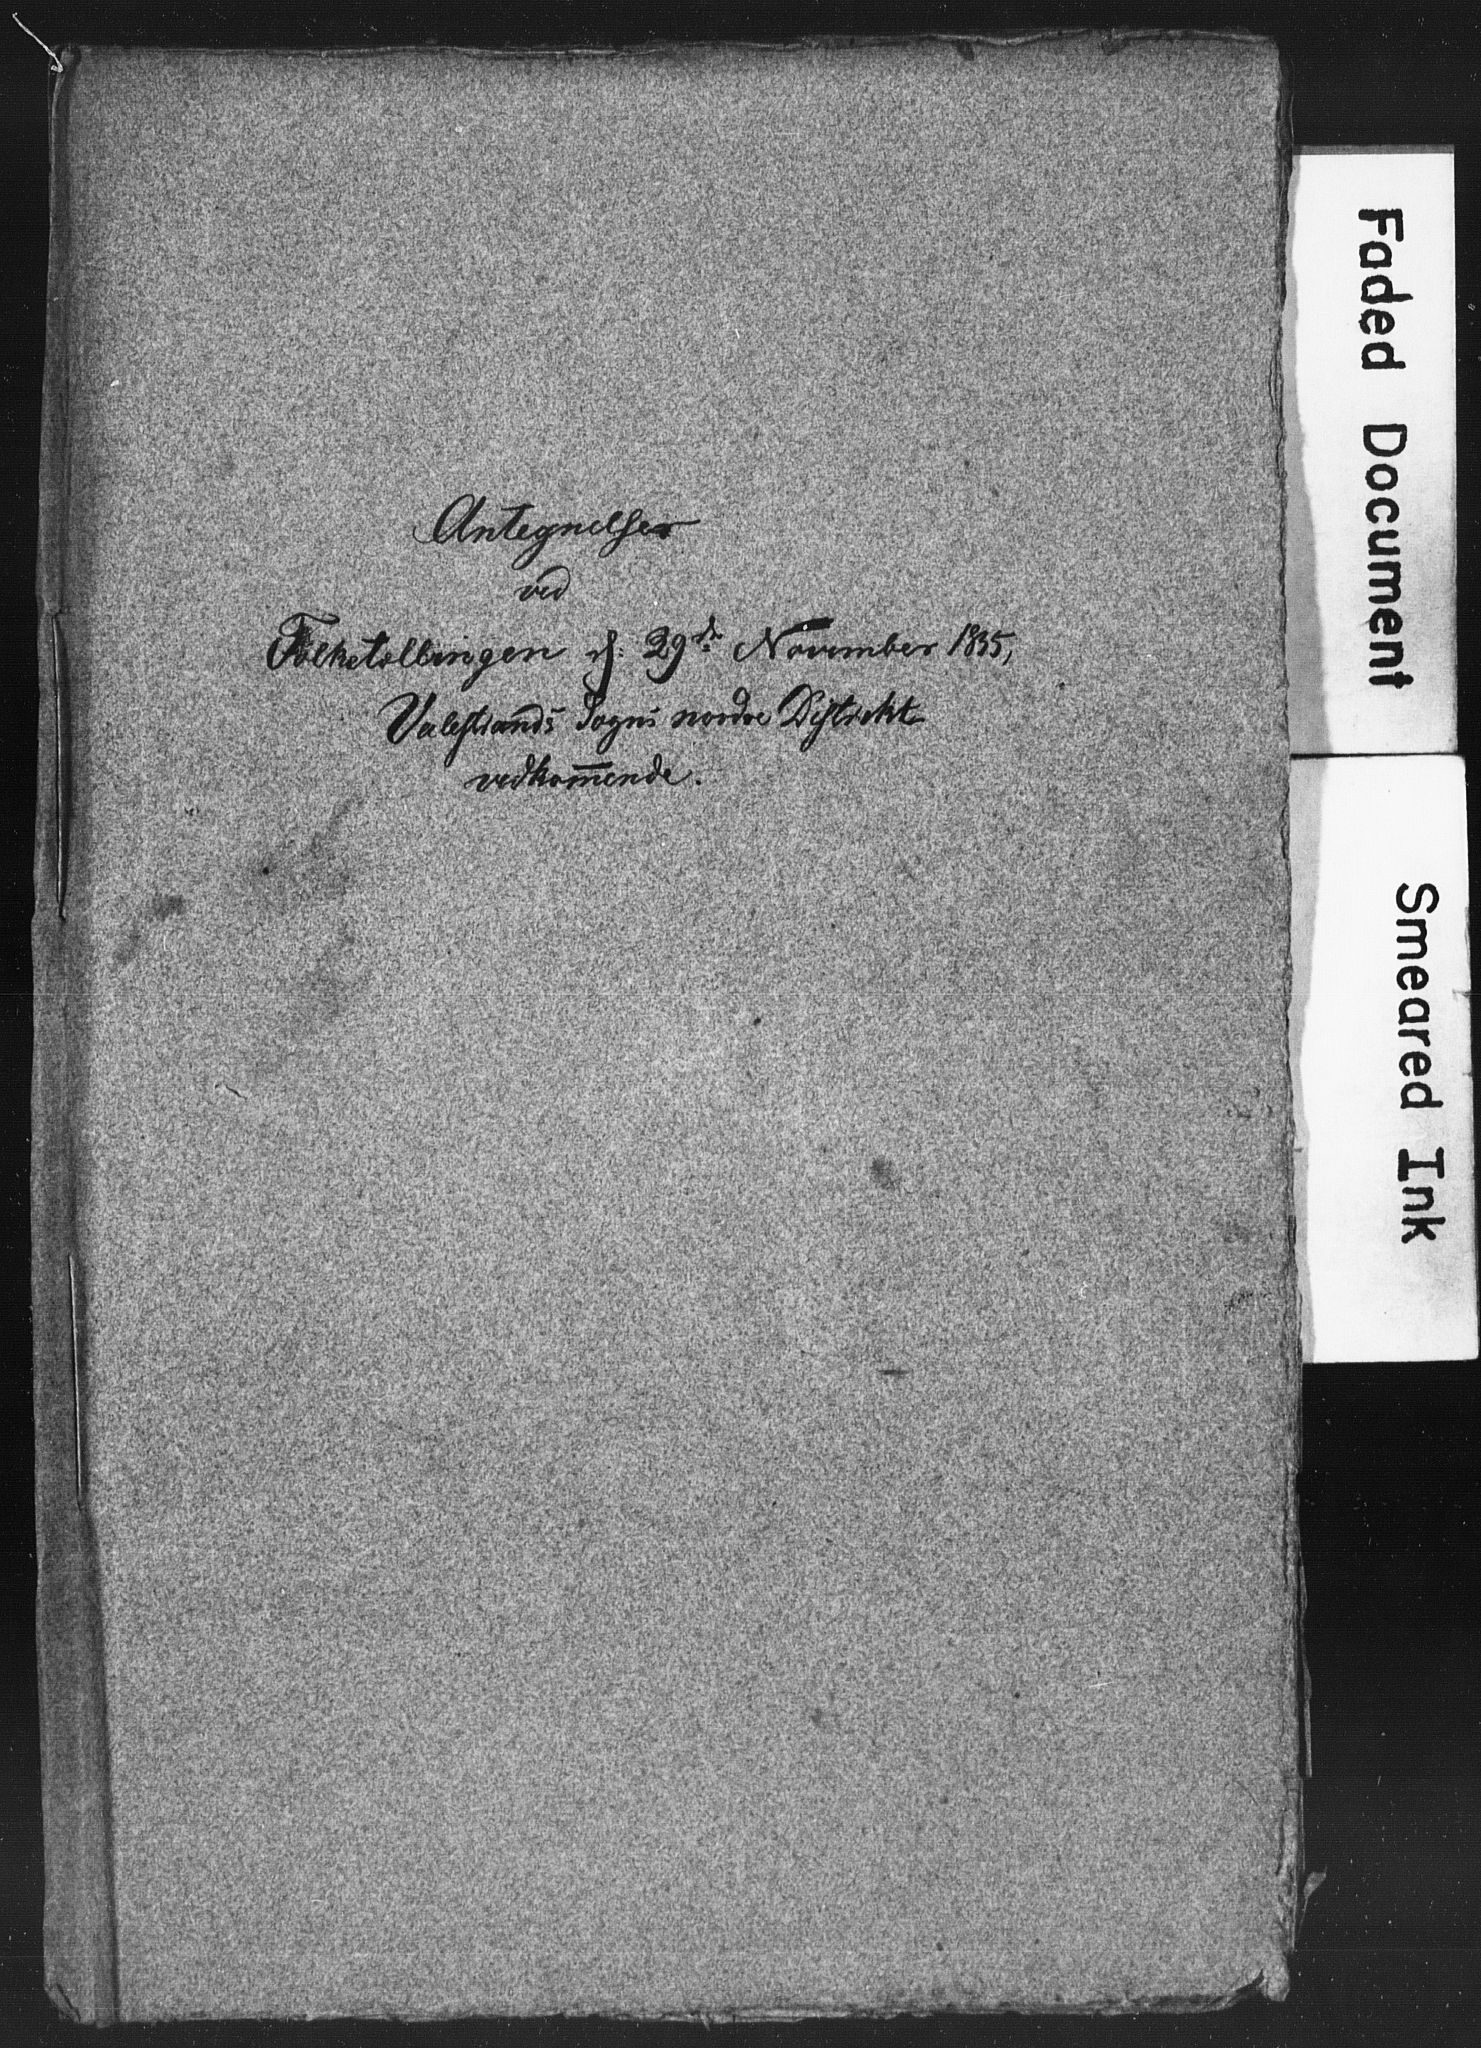 Antegnelser
ved
Folketællingen d: 29de November 1835,
Valestrands Sogns nordre Distrikt
vedkom̅ende.
Faded Document
Smeared Ink